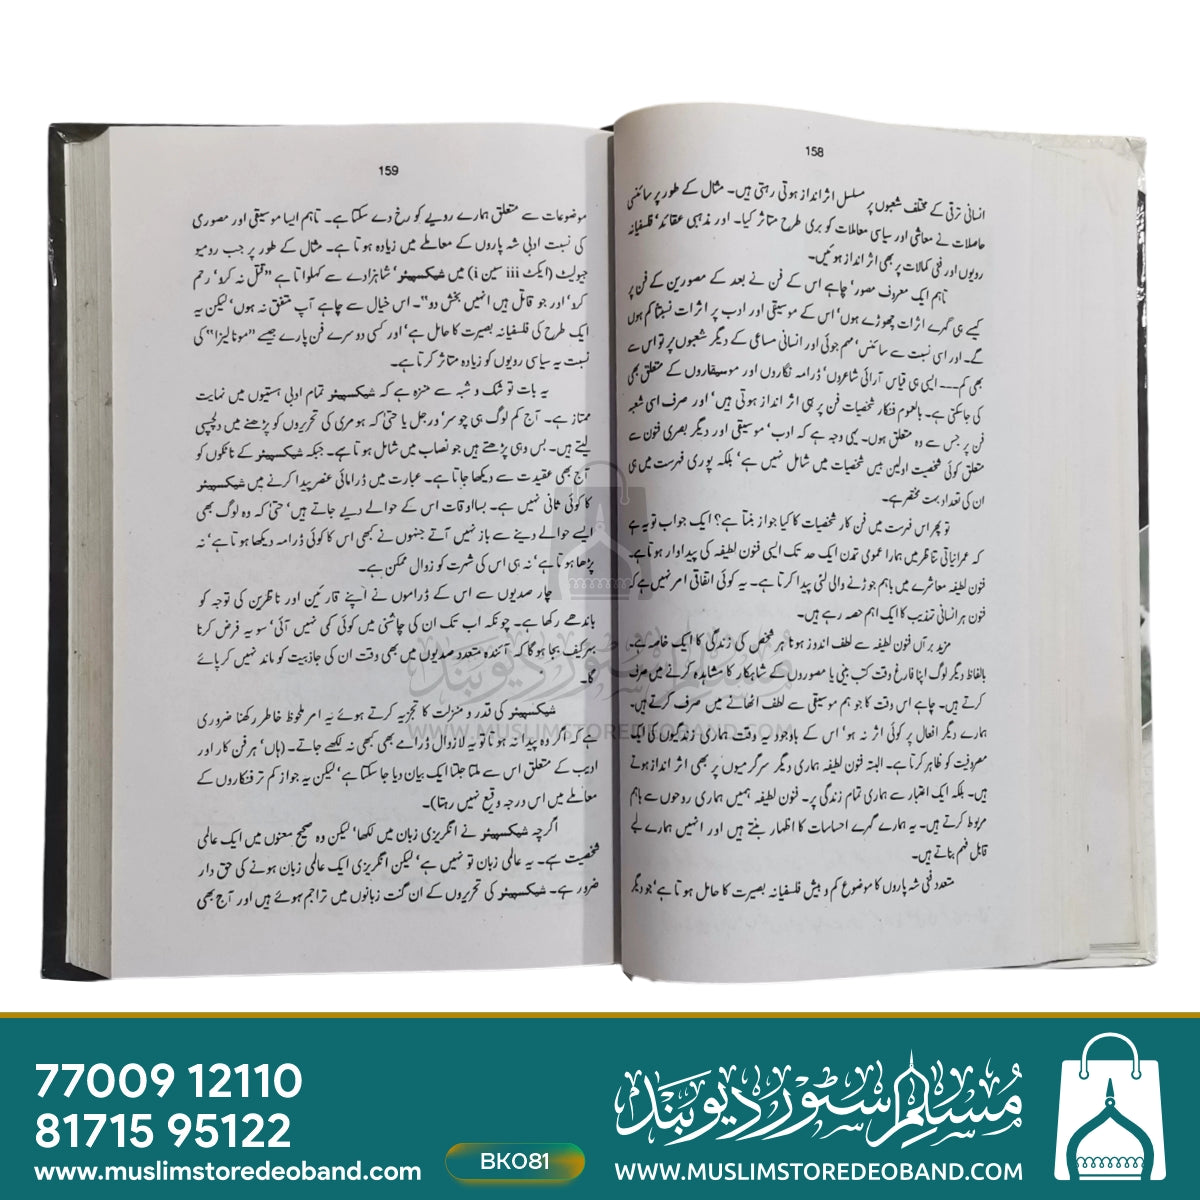 158
انسانی ترقی کے مختلف شعبوں پر مسلسل اثر انداز ہوتی رہتی ہیں۔ مثال کے طور پر سائنسی
حاصلات نے معاشی اور سیاسی معاملات کو بری طرح متاثر کیا۔ اور مذہبی عقائد' فلسفیانہ
رویوں اور فنی کمالات پر بھی اثر انداز ہوئیں۔
تاہم ایک معروف مصور' چاہے اس کے فن نے بعد کے مصورین کے فن پر
کیسے ہی گہرے اثرات چھوڑے ہوں' اس کے موسیقی اور ادب پر اثرات نسبتاً کم ہوں
گے۔ اور اسی نسبت سے سائنس' مہم جوئی اور انسانی مساعی کے دیگر شعبوں پر تو اس سے
بھی کم--- ایسی ہی قیاس آرائی شاعروں' ڈرامہ نگاروں اور موسیقاروں کے متعلق بھی
کی جا سکتی ہے۔ بالعموم فنکار شخصیات فن پر ہی اثر انداز ہوتی ہیں' اور صرف اسی شعبہ
فن پر جس سے وہ متعلق ہوں۔ یہی وجہ ہے کہ ادب' موسیقی اور دیگر بصری فنون سے
متعلق کوئی شخصیت اولین بیس شخصیات میں شامل نہیں ہے' بلکہ پوری فہرست میں ہی
ان کی تعداد بہت مختصر ہے۔
تو پھر اس فہرست میں فن کار شخصیات کا کیا جواز بنتا ہے؟ ایک جواب تو یہ ہے
کہ عمرانیاتی تناظر میں ہمارا عمومی تمدن ایک حد تک ایسی فنون لطیفہ کی پیداوار ہوتا ہے۔
فنون لطیفہ معاشرے میں باہم جوڑنے والی لئی پیدا کرتا ہے۔ یہ کوئی اتفاقی امر نہیں ہے کہ
فنون ہر انسانی تہذیب کا ایک اہم حصہ رہے ہیں۔
مزید براں فنون لطیفہ سے لطف اندوز ہونا ہر شخص کی زندگی کا ایک خاصہ ہے۔
بالفاظ دیگر لوگ اپنا فارغ وقت کتب بینی یا مصوروں کے شاہکار کا مشاہدہ کرنے میں صرف
کرتے ہیں۔ چاہے اس وقت کا جو ہم موسیقی سے لطف اٹھانے میں صرف کرتے ہیں۔
ہمارے دیگر افعال پر کوئی اثر نہ ہو' اس کے باوجود یہ وقت ہماری زندگیوں کی ایک
معروفیت کو ظاہر کرتا ہے۔ البتہ فنون لطیفہ ہماری دیگر سرگرمیوں پر بھی اثر انداز ہوتے
ہیں۔ بلکہ ایک اعتبار سے ہماری تمام زندگی پر۔ فنون لطیفہ ہمیں ہماری روحوں سے باہم
مربوط کرتے ہیں۔ یہ ہمارے گہرے احساسات کا اظہار بنتے ہیں اور انہیں ہمارے لیے
قابل فہم بناتے ہیں۔
متعدد فنی شہ پاروں کا موضوع کم و بیش فلسفیانہ بصیرت کا حامل ہوتا ہے' جو دیگر
159
موضوعات سے متعلق ہمارے رویے کو رخ دے سکتا ہے۔ تاہم ایسا موسیقی اور مصوری
کی نسبت ادبی شہ پاروں کے معاملے میں زیادہ ہوتا ہے۔ مثال کے طور پر جب رومیو
جیولیٹ (ایکٹ iii سین i) میں شیکسپیئر' شاہزادے سے کہلواتا ہے "قتل نہ کرو' رحم
کرو' اور جو قاتل ہیں انہیں بخش دو"۔ اس خیال سے چاہے آپ متفق نہ ہوں' لیکن یہ
ایک طرح کی فلسفیانہ بصیرت کا حامل ہے' اور کسی دوسرے فن پارے جیسے "مونالیزا" کی
نسبت یہ سیاسی رویوں کو زیادہ متاثر کرتا ہے۔
یہ بات تو شک و شبہ سے منزہ ہے کہ شیکسپیئر تمام ادبی ہستیوں میں نہایت
ممتاز ہے۔ آج کم لوگ ہی چوسر' ورجل یا حتیٰ کہ ہومر کی تحریروں کو پڑھنے میں دلچسپی
لیتے ہیں۔ بس وہی پڑھتے ہیں جو نصاب میں شامل ہوتا ہے۔ جبکہ شیکسپیئر کے ناٹکوں کو
آج بھی عقیدت سے دیکھا جاتا ہے۔ عبارت میں ڈرامائی عنصر پیدا کرنے میں شیکسپیئر
کا کوئی ثانی نہیں ہے۔ بسا اوقات اس کے حوالے دیے جاتے ہیں' حتیٰ کہ وہ لوگ بھی
ایسے حوالے دینے سے باز نہیں آتے جنہوں نے کبھی اس کا کوئی ڈرامہ دیکھا ہوتا ہے' نہ
پڑھا ہوتا ہے' نہ ہی اس کی شہرت کو زوال ممکن ہے۔
چار صدیوں سے اس کے ڈراموں نے اپنے قارئین اور ناظرین کی توجہ کو
باندھے رکھا ہے۔ چونکہ اب تک ان کی چاشنی میں کوئی کمی نہیں آئی' سو یہ فرض کرنا
بہر کیف بجا ہو گا کہ آئندہ متعدد صدیوں میں بھی وقت ان کی جاذبیت کو ماند نہیں کر پائے
گا۔
شیکسپیئر کی قدر و منزلت کا تجزیہ کرتے ہوئے یہ امر ملحوظ خاطر رکھنا ضروری
ہے کہ اگر وہ پیدا نہ ہوتا تو یہ لازوال ڈرامے بھی کبھی نہ لکھے جاتے۔ (ہاں' ہر فن کار اور
ادیب کے متعلق اس سے ملتا جلتا ایک بیان دیا جا سکتا ہے' لیکن یہ جواز کم تر فنکاروں کے
معاملے میں اس درجہ وقیع نہیں رہتا)۔
اگرچہ شیکسپیئر نے انگریزی زبان میں لکھا' لیکن وہ صحیح معنوں میں ایک عالمی
شخصیت ہے۔ یہ عالمی زبان تو نہیں ہے' لیکن انگریزی ایک عالمی زبان ہونے کی حق دار
ضرور ہے۔ شیکسپیئر کی تحریروں کے ان گنت زبانوں میں تراجم ہوئے ہیں اور آج بھی
مسلم سٹور دیوبند
WWW.MUSLIMSTOREDEOBAND.COM
77009 12110
81715 95122
www.muslimstoredeoband.com
BK081
مسلم سٹور دیوبند
WWW.MUSLIMSTOREDEOBAND.COM